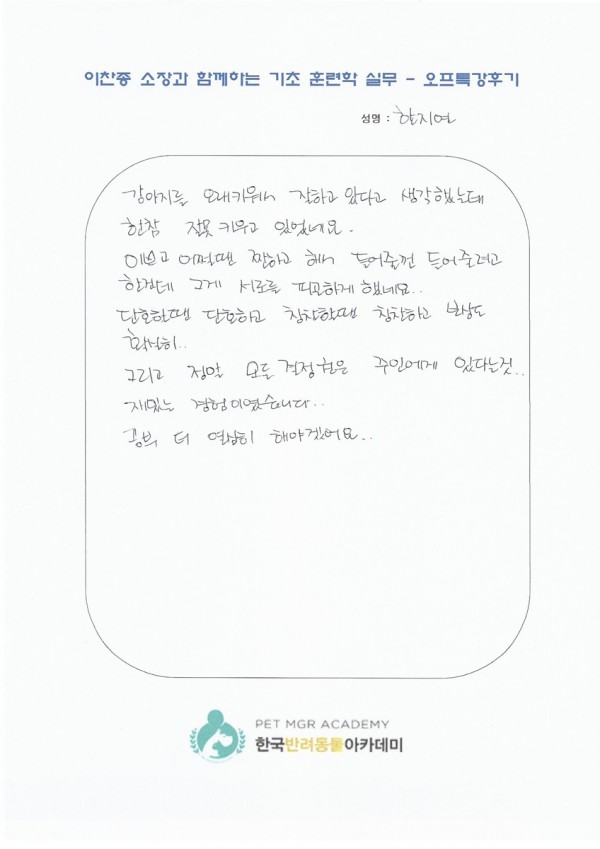 이찬종 소장과 함께하는 기초 훈련학 실무 - 오프특강후기
성명 : 한지연
강아지를 오래키워서 잘하고 있다고 생각했는데
한참 잘못 키우고 있었네요.
이쁘고 어떨땐 짠하고 해서 들어줄껀 들어줄려고
한건데 그게 서로를 피곤하게 했네요..
단호할땐 단호하고 칭찬할땐 칭찬하고 보상도
확실히..
그리고 정말 모든 결정권은 주인에게 있다는것..
재밌는 경험이였습니다..
공부 더 열심히 해야겠어요..
PET MGR ACADEMY
한국반려동물아카데미